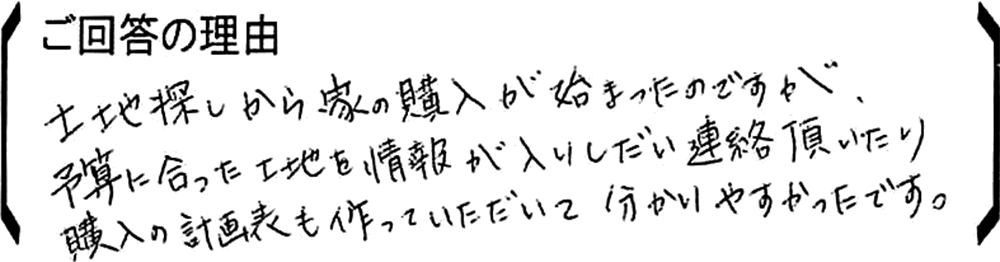 ご回答の理由
土地探しから家の購入が始まったのですが、
予算に合った土地を情報が入りしだい連絡頂いたり
購入の計画表も作っていただいて分かりやすかったです。